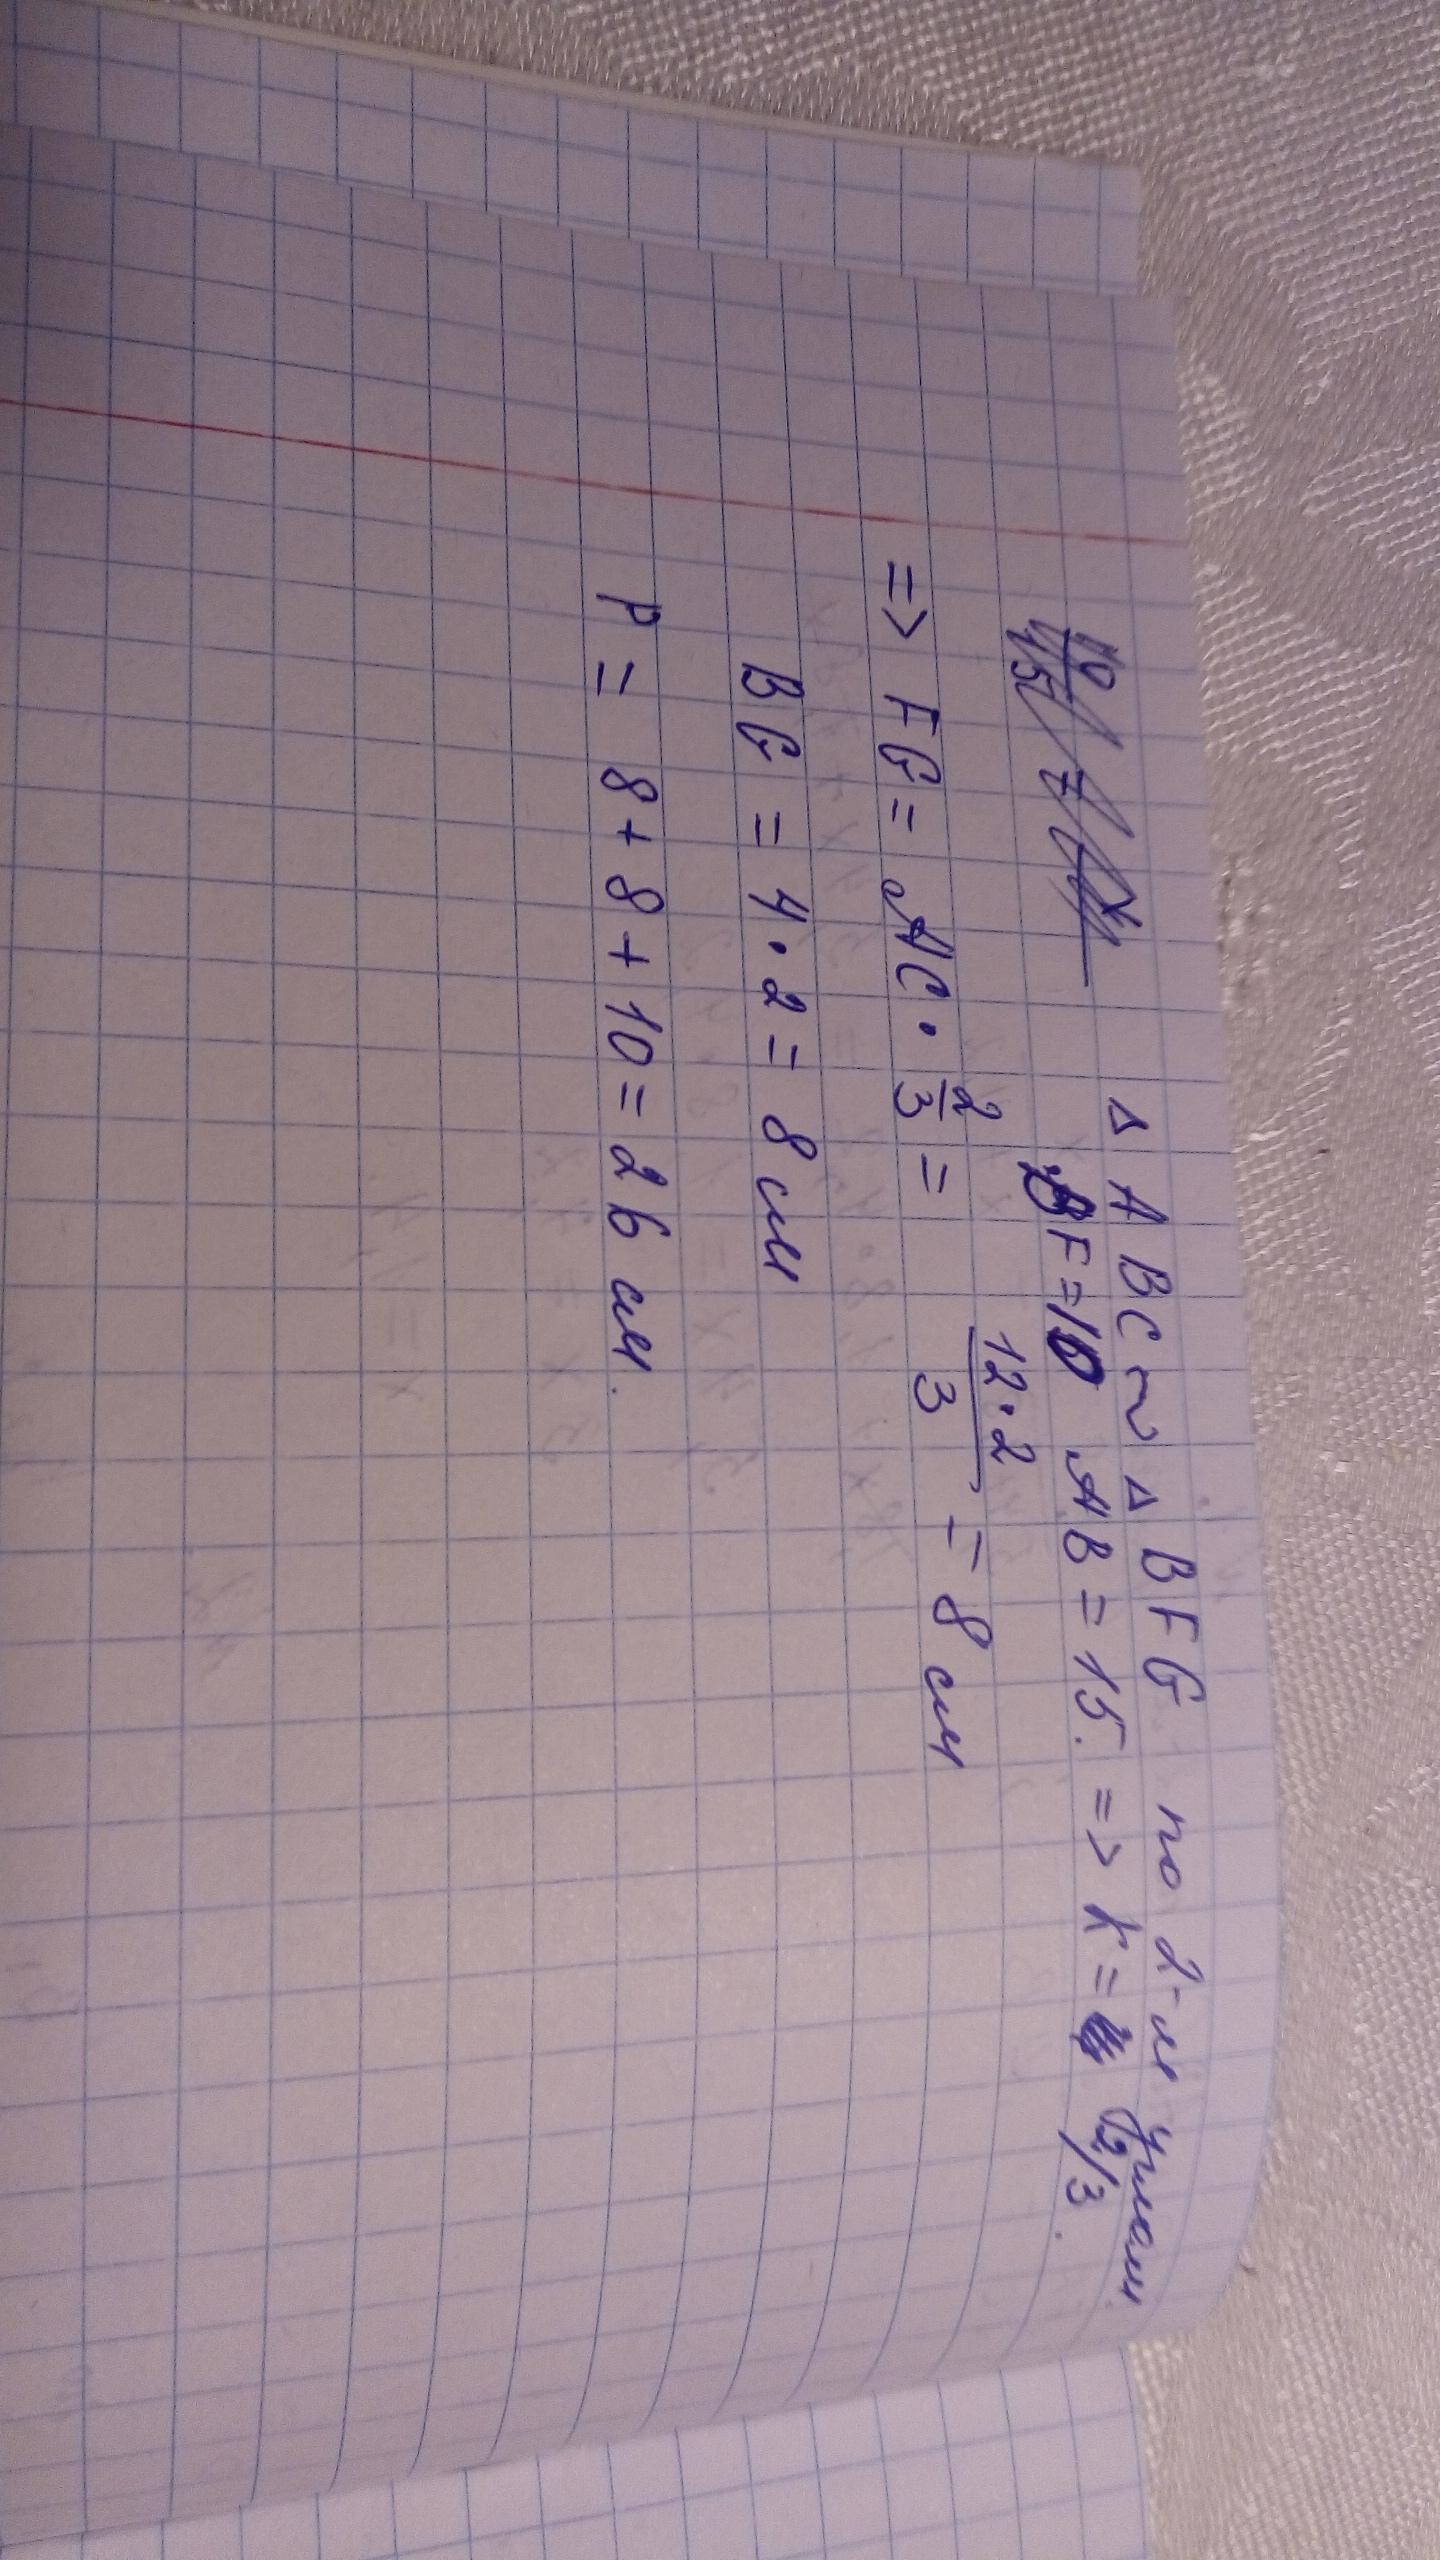 △ ABC ~ △ BFG по 2-м углам
BF = 10 AB = 15. => k = 2/3.
=> FG = AC · 2/3 = 12·2/3 = 8 см
BG = 4·2 = 8 см
P = 8 + 8 + 10 = 26 см.